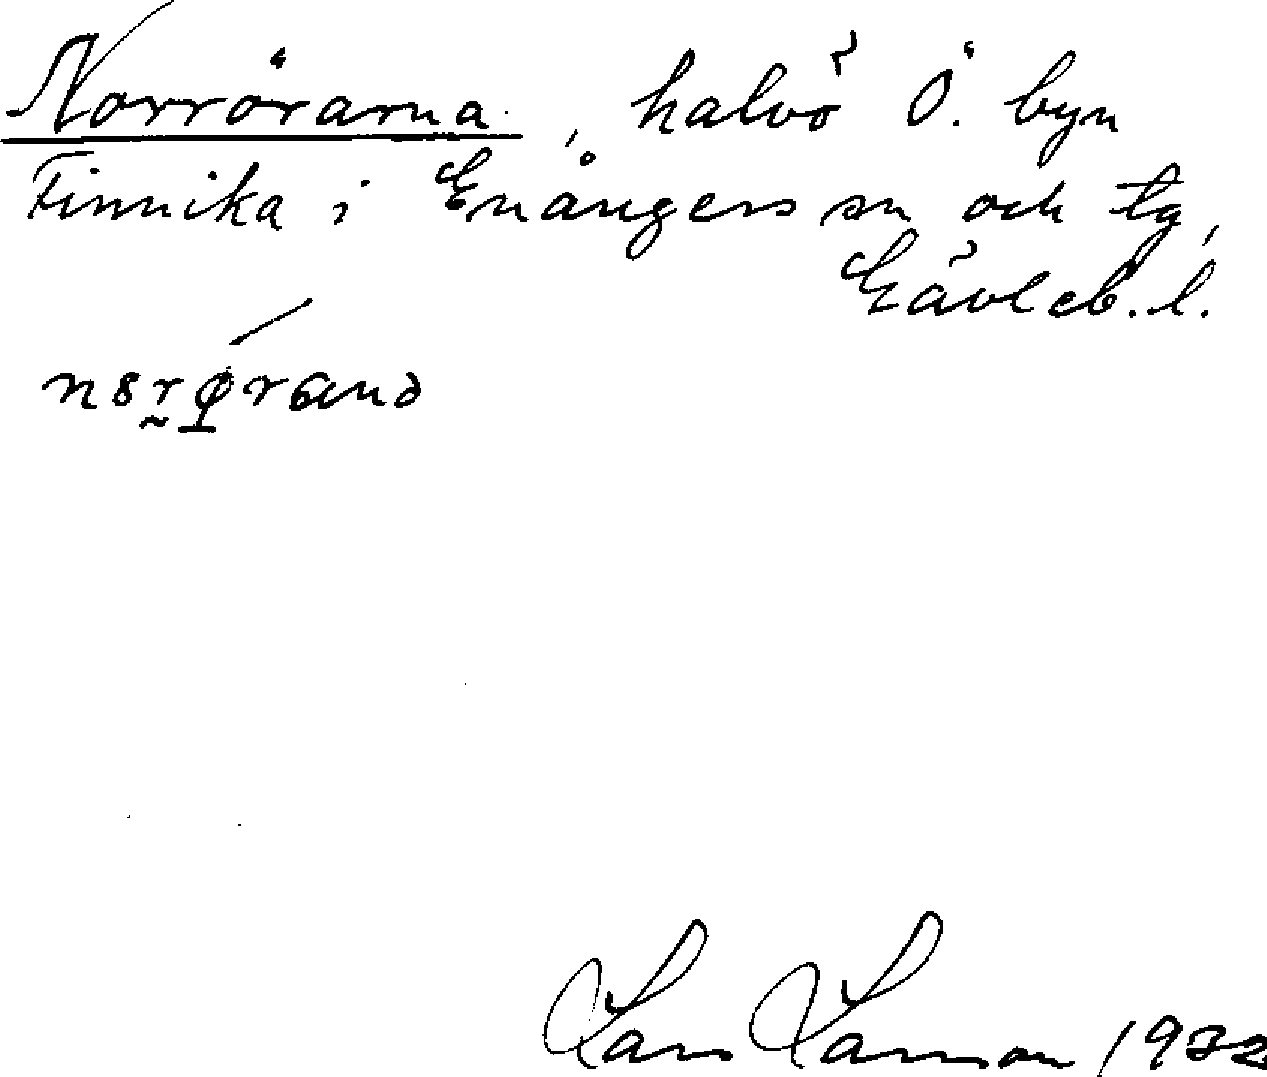 Norrörarna, halvö Ö. byn
Finnika i Enångers sn och tg,
Gävleb. l.
Lars Larsson 1932